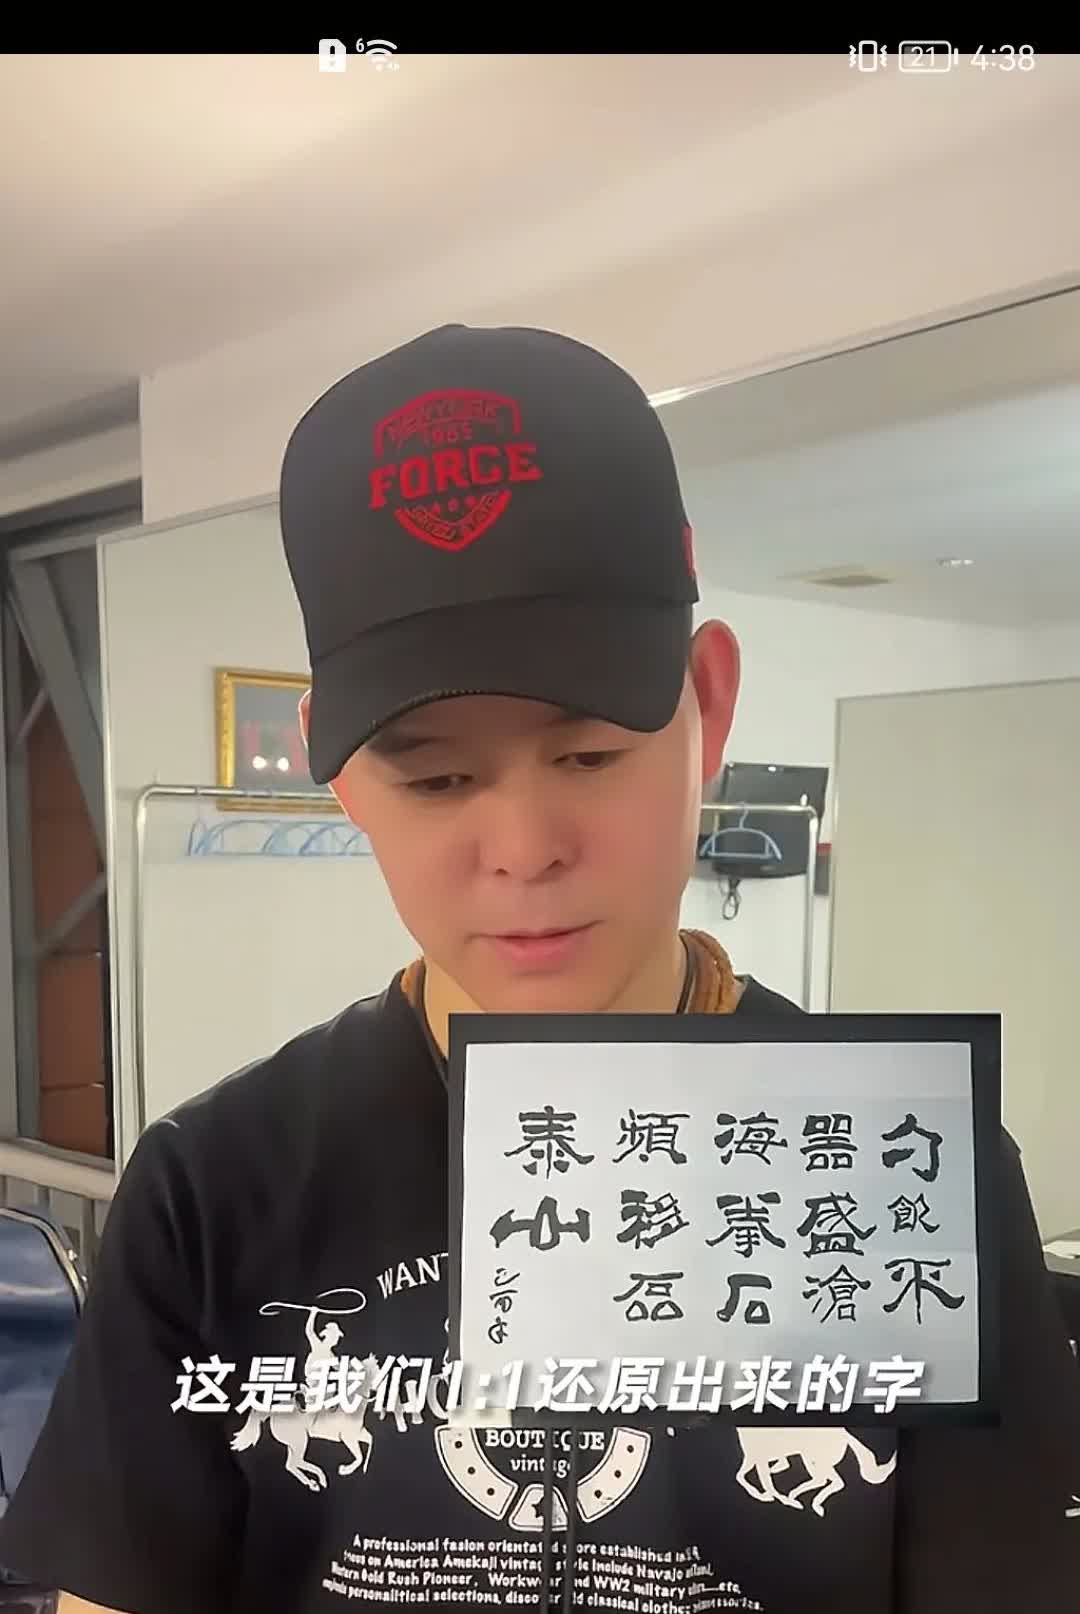 6
21 4:38
1985
FORCE
勺飲不
器盛滄
海拳石
頻移磊
泰山
WANT
这是我们1:1还原出来的字
BOUTIQUE
vintage
A professional fasion orientated store established in
focus on America Amekaji vintage style Include Navajo
Western Gold Rush Pioneer, Workwear and WW2 military etc,
personalitical selections, discover old classical clothes